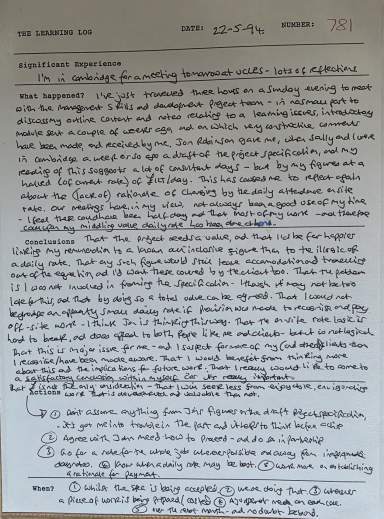 THE LEARNING LOG DATE: 22-5-94 NUMBER: 781
Significant Experience
I'm in Cambridge for a meeting tomorrow at UCLES - lots of reflections
What happened? I've just travelled three hours on a Sunday evening to meet
with the Management Skills and development Project team - in no small part to
discuss my outline content and notes relating to a learning issues, introductory
module sent a couple of weeks ago, and on which very constructive comments
have been made and received by me. Jon Robinson gave me, when Sally and I were
in Cambridge a week or so ago a draft of the project specification, and my
reading of this suggests a lot of consultant days - but by my figures at a
halved (of current rate) of /day. This has caused me to reflect again
about the (lack of) rationale of charging by the daily attendance on site
rate. Our meetings have, in my view, not always been a good use of my time,
- I feel there could have been half day and that most of my work - and therefore
Conclusions That the project needs a value, and that I'd be far happier
linking my remuneration to a known all inclusive figure than to the illogic of
a daily rate. That any such figure would still leave accommodation and travelling
out of the equation and I'd want these covered by the client too. That the problem
is I was not involved in framing the specification - though it may not be too
late for this, and that by doing so a total value can be agreed. That I would not
begrudge an apparently small daily rate if provision was made to recognise and pay
off-site work - I think Jon is thinking this way. That the on-site rate logic is
hard to break, and does appeal to both people like me and clients - but is not logical
that this is major issue for me - and I suspect for more of my clients than
I recognise / have been made aware. That I would benefit from thinking more
about this and the implications for future work. That I really would like to come to
a satisfactory conclusion within myself
work that is developmental and valuable than not.
Actions
① Don't assume anything from Jon's figures in the draft project specification
- it's got me into trouble in the past and to think before
② Agree with Jon need how to proceed - and do so in partnership
③ Go for a rate for the whole job wherever possible and away from
days too. ④ when a daily rate may be best. ⑤ Work more on establishing
a rationale for payment.
When? ① Whilst the spec is being accepted. ② We're doing that. ③ Whenever
a piece of work is being prepared / costed ④
⑤ over the next month - and no doubt beyond.